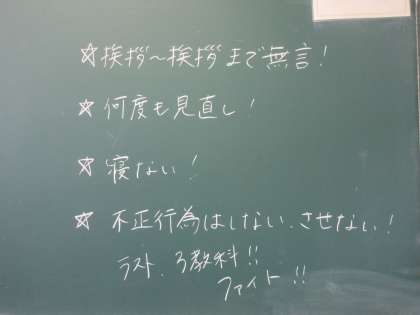 ☆挨拶～挨拶まで無言!
☆何度も見直し!
☆寝ない!
☆不正行為はしない、させない!
ラスト、3教科!!
ファイト!!